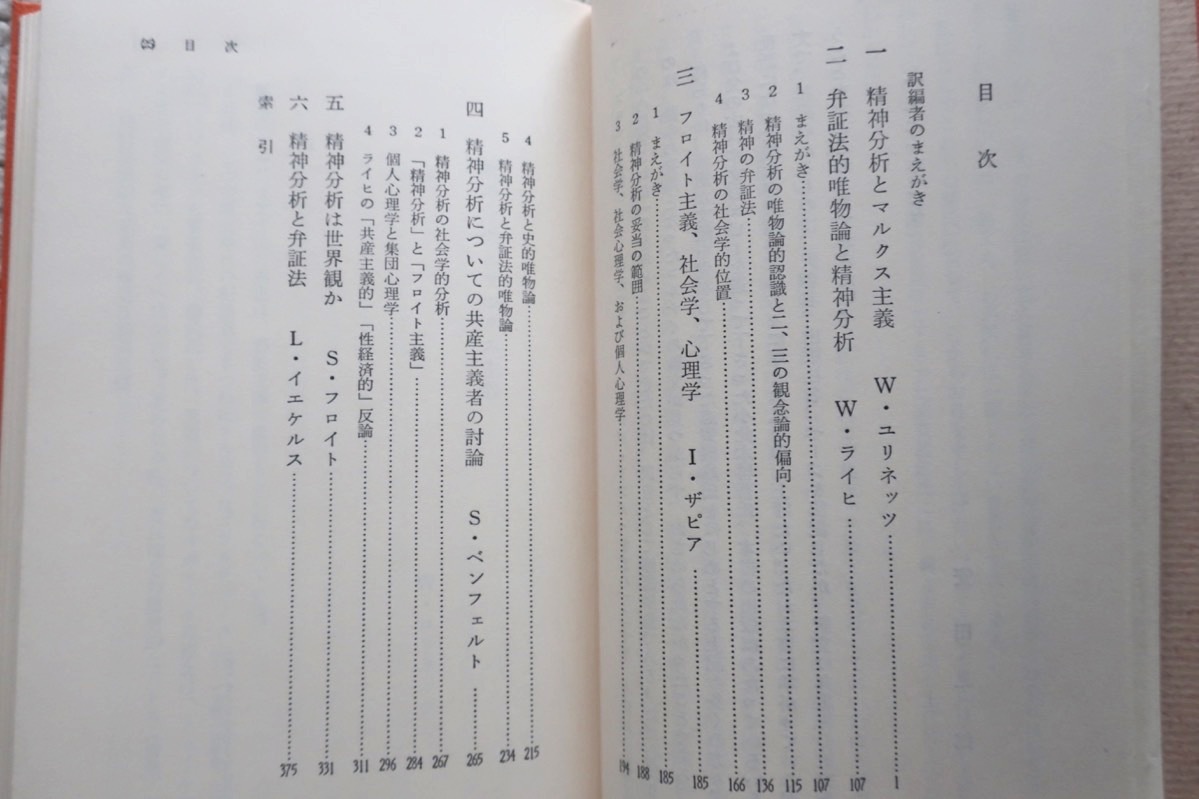 目次
訳編者のまえがき
一 精神分析とマルクス主義 W・ユリネッツ……1
二 弁証法的唯物論と精神分析 W・ライヒ……107
1 まえがき……107
2 精神分析の唯物論的認識と二、三の観念論的偏向……115
3 精神の弁証法……136
4 精神分析の社会学的位置……166
三 フロイト主義、社会学、心理学 I・ザピア……185
1 まえがき……185
2 精神分析の妥当の範囲……188
3 社会学、社会心理学、および個人心理学……194
4 精神分析と史的唯物論……215
5 精神分析と弁証法的唯物論……234
四 精神分析についての共産主義者の討論 S・ベンフェルト……265
1 精神分析の社会学的分析……267
2 「精神分析」と「フロイト主義」……284
3 個人心理学と集団心理学……296
4 ライヒの「共産主義的」「性経済的」反論……311
五 精神分析は世界観か S・フロイト……331
六 精神分析と弁証法 L・イエケルス……375
索引
目次